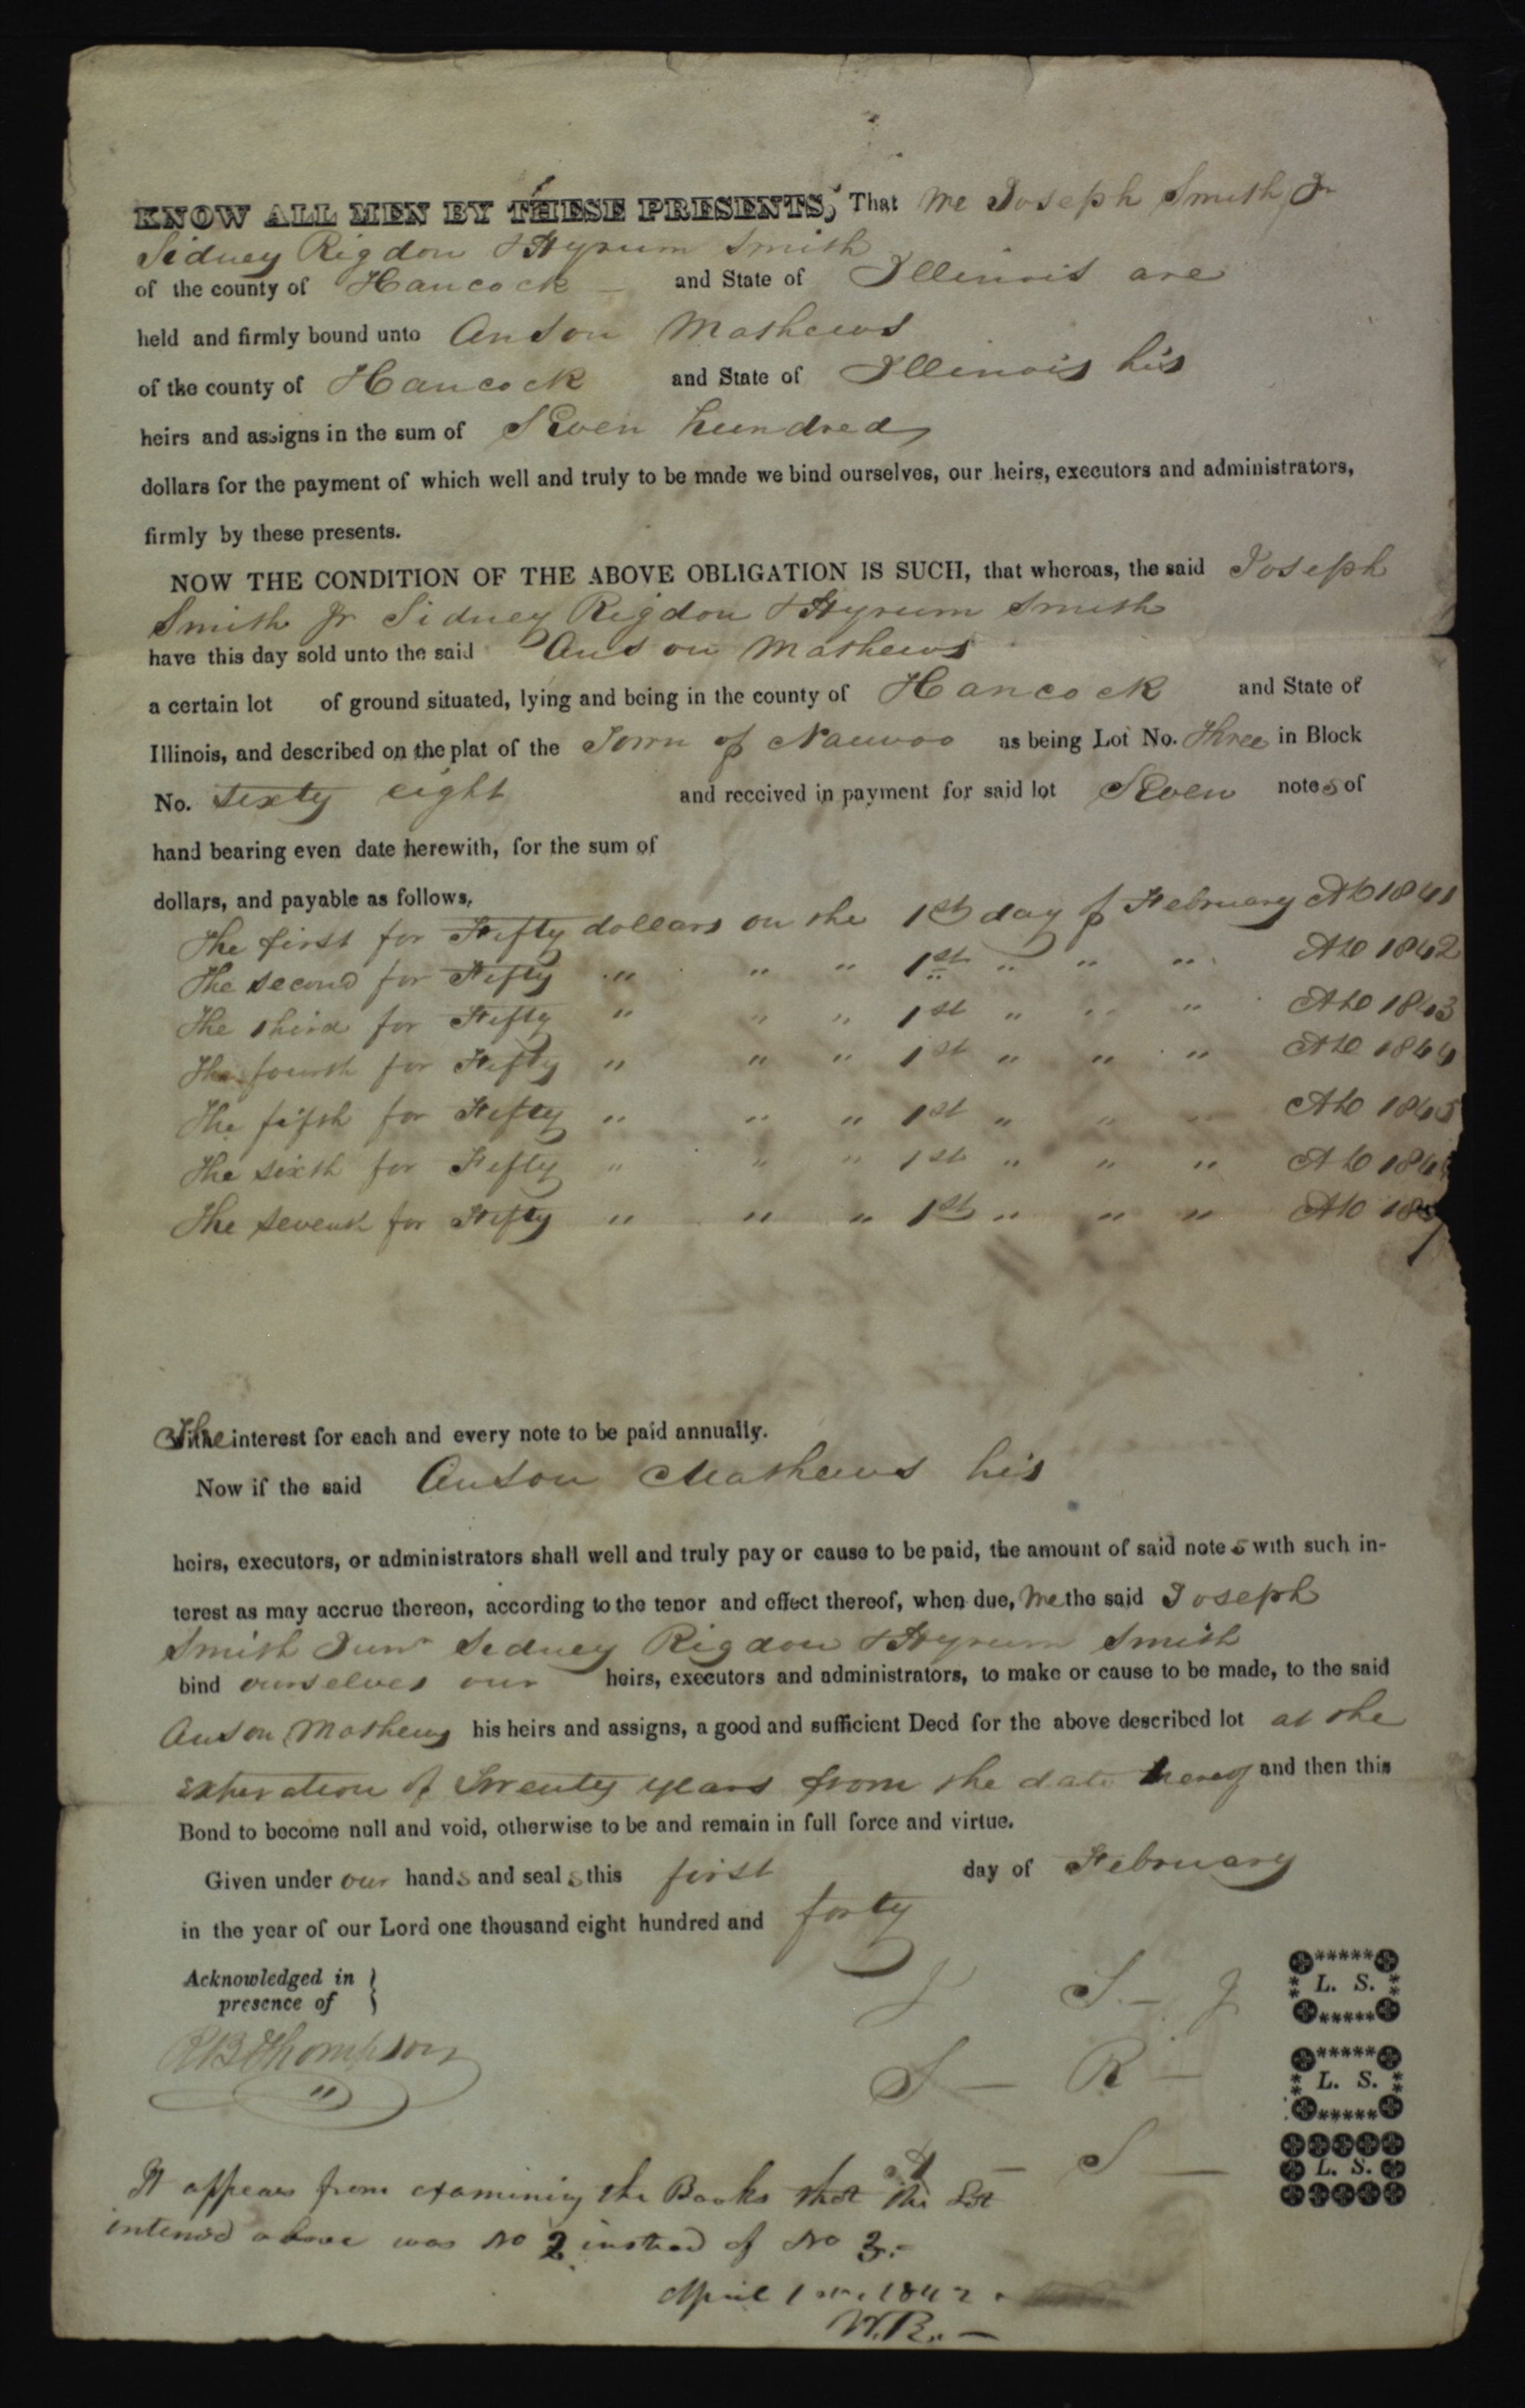 KNOW ALL MEN BY THESE PRESENTS, That We Joseph Smith Jr
Sidney Rigdon & Hyrum Smith
of the county of Hancock and State of Illinois are
held and firmly bound unto Anson Mathews
of the county of Hancock and State of Illinois his
heirs and assigns in the sum of Seven hundred
dollars for the payment of which well and truly to be made we bind ourselves, our heirs, executors and administrators,
firmly by these presents.
NOW THE CONDITION OF THE ABOVE OBLIGATION IS SUCH, that whereas, the said Joseph
Smith Jr Sidney Rigdon & Hyrum Smith
have this day sold unto the said Anson Mathews
a certain lot of ground situated, lying and being in the county of Hancock and State of
Illinois, and described on the plat of the Town of Nauvoo as being Lot No. Three in Block
No. sixty eight and received in payment for said lot Seven notes of
hand bearing even date herewith, for the sum of
dollars, and payable as follows,
The first for Fifty dollars on the 1st day of February AD 1841
The second for Fifty " " " 1st " " " AD 1842
The third for Fifty " " " 1st " " " AD 1843
The fourth for Fifty " " " 1st " " " AD 1844
The fifth for Fifty " " " 1st " " " AD 1845
The sixth for Fifty " " " 1st " " " AD 184
The seventh for Fifty " " " 1st " " " AD 18
The interest for each and every note to be paid annually.
Now if the said Anson Mathews his
heirs, executors, or administrators shall well and truly pay or cause to be paid, the amount of said notes with such in-
terest as may accrue thereon, according to the tenor and effect thereof, when due, We the said Joseph
Smith Junr Sidney Rigdon & Hyrum Smith
bind ourselves our heirs, executors and administrators, to make or cause to be made, to the said
Anson Mathews his heirs and assigns, a good and sufficient Deed for the above described lot at the
expiration of Twenty years from the date hereof and then this
Bond to become null and void, otherwise to be and remain in full force and virtue.
Given under our hands and seals this first day of February
in the year of our Lord one thousand eight hundred and forty
Acknowledged in
presence of
J S - J L. S.
R B Thompson
S - R - L. S.
H - S - L. S.
It appears from examining the Books that the Lot
intend above was No 2 instead of No 3.-
April 1st, 1842.
W.R. -